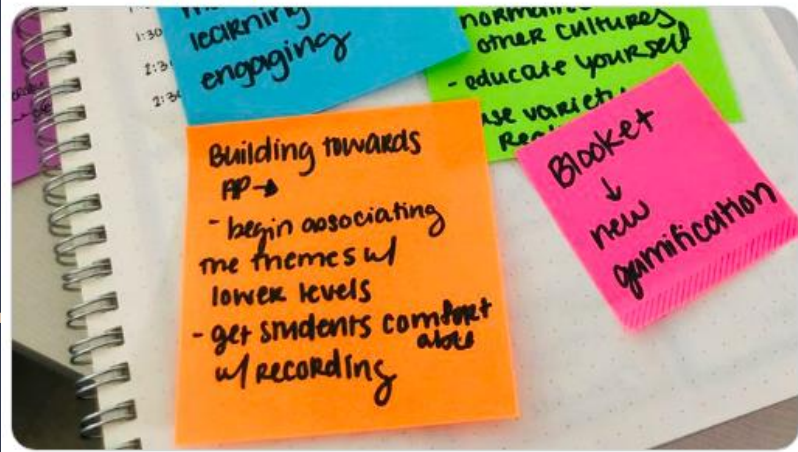 learning
engaging
other cultures
- educate yourself
use variety
Building towards
AP →
- begin associating
the themes w/
lower levels
- get students comfort
able
w/ recording
Blooket
↓
new
gamification
1:30
2:30